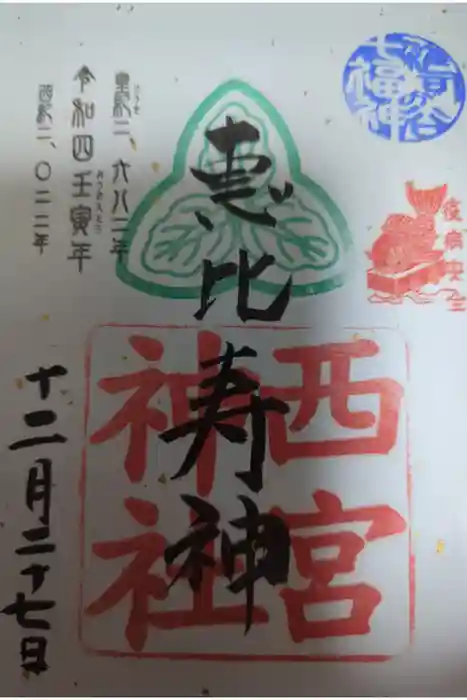 七福神
疫病安全
恵比寿神
西宮
神社
皇紀二、六八二年
令和四壬寅年
西紀二、〇二二年
十二月二十七日